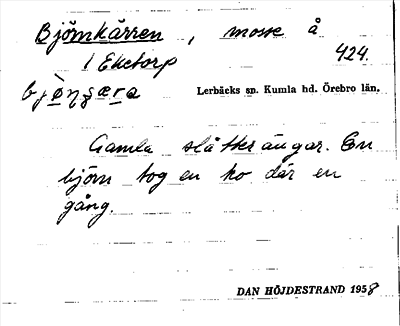 Björnkärren, mosse å
1 Ekctorp 424.
Lerbäcks sn. Kumla hd. Örebro län.
Gamla slåtterängar. En
björn tog en ko där en
gång.
DAN HÖJDESTRAND 1958